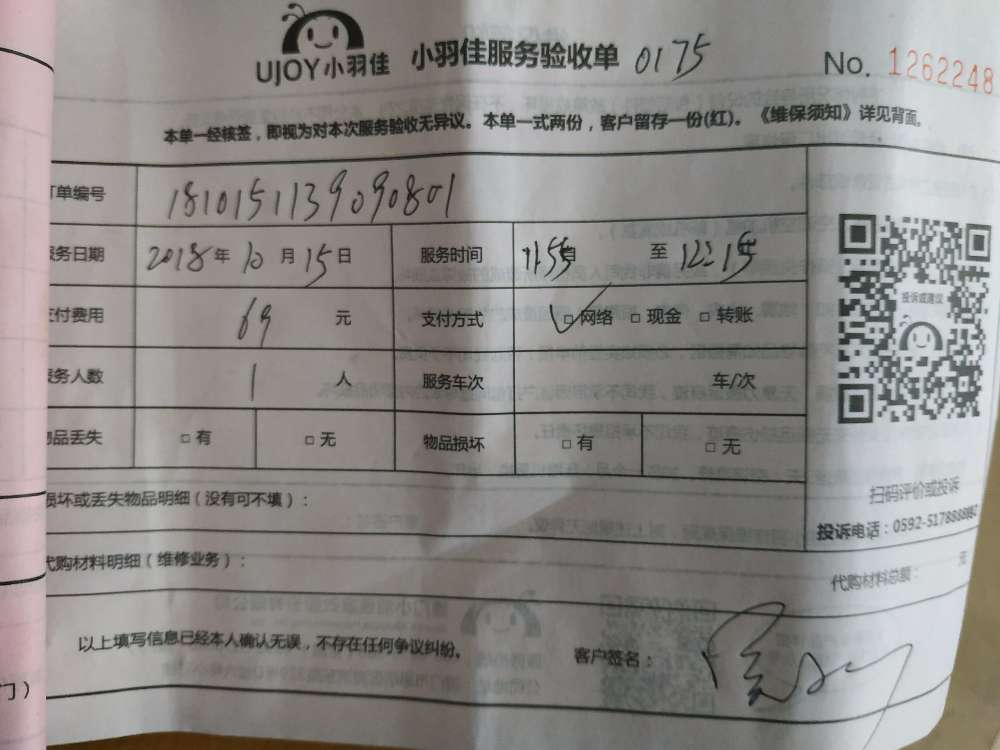 UJOY小羽佳 小羽佳服务验收单 0175 No. 1262248
本单一经核签，即视为对本次服务验收无异议。本单一式两份，客户留存一份(红)。《维保须知》详见背面。
订单编号 181015113909080l
服务日期 2018年10月15日 服务时间 至 12:15
支付费用 69 元 支付方式 ✓□网络 □现金 □转账
服务人数 1 人 服务车次 车/次
物品丢失 □有 □无 物品损坏 □有 □无
投诉或建议
扫码评价或投诉
损坏或丢失物品明细（没有可不填）：
投诉电话：0592-5178888
代购材料明细（维修业务）：
代购材料总额： 元
以上填写信息已经本人确认无误，不存在任何争议纠纷。 客户签名：
门）